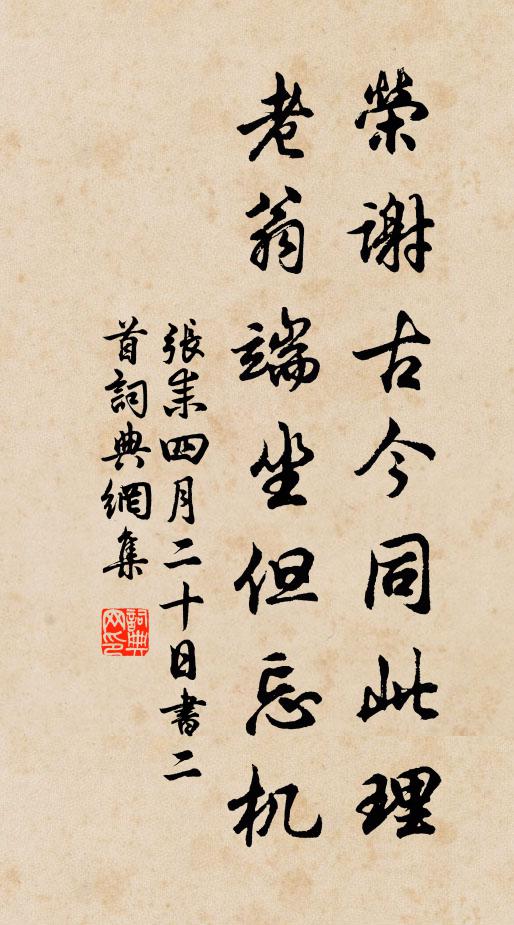 榮謝古今同此理
老翁端坐但忘机
張耒四月二十日書二
首詞典網集
詞典網印